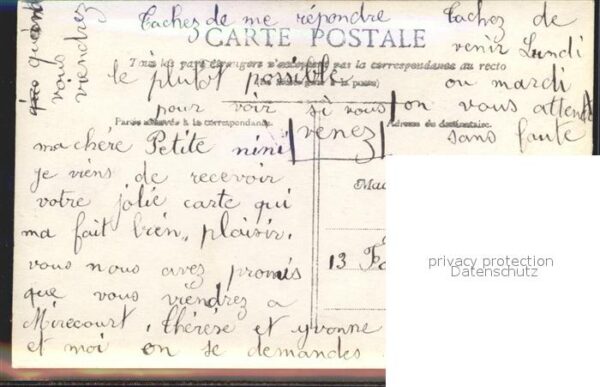 Tachez de me répondre
le plutot possible
pour voir si vous
venez
Tachez de
venir Lundi
ou mardi
on vous attend
sans faute
quand
vous
viendrez
CARTE POSTALE
Tous les pays étrangers n'acceptent pas la correspondance au recto
à la poste)
Partie réservée à la correspondance.
Adresse du destinataire.
ma chére Petite nini
je viens de recevoir
votre jolie carte qui
ma fait bien,, plaisir.
vous nous avez promis
que vous viendrez a
Mirecourt, thérèse et yvonne
et moi on se demandes
Mad
13
privacy protection
Datenschutz